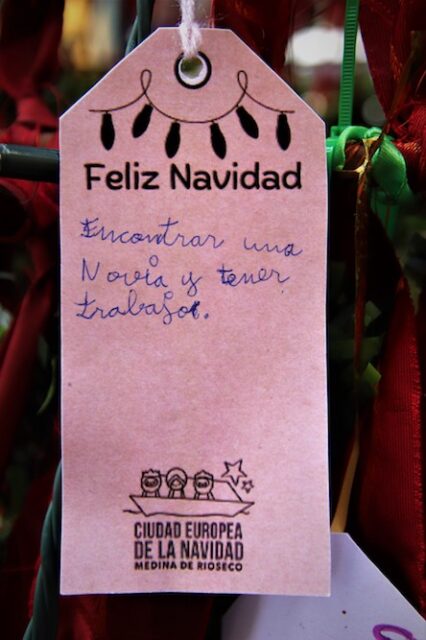 Feliz Navidad
Encontrar una
Novia y tener
trabajo.
CIUDAD EUROPEA
DE LA NAVIDAD
MEDINA DE RIOSECO